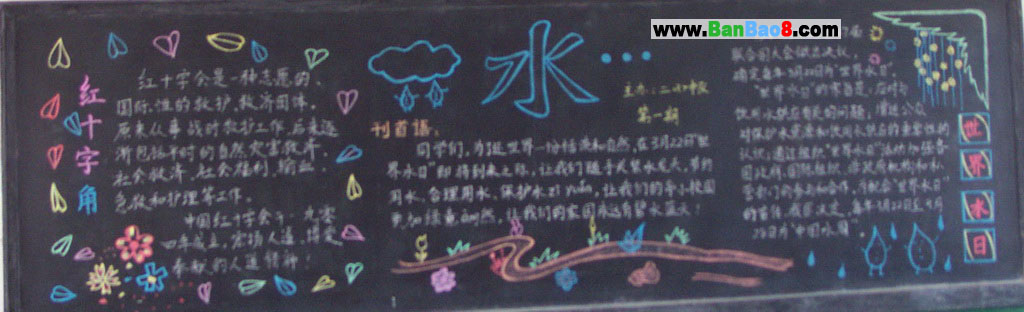 www.BanBao8.com
红十字角
红十字会是一种志愿的、
国际性的救护、救济团体。
原来从事战时救护工作，后来逐
渐包括平时的自然灾害救济、
社会救济、社会福利、输血、
急救和护理等工作。
中国红十字会于一九零
四年成立，宏扬人道、博爱、
奉献的人道精神！
水
主办：二小中校
第一期
刊首语：
同学们，为给世界一份结
和自然，在3月22日“世
界水日”即将到来之际，让我们随手关紧水龙头，节约
用水、合理用水、保护水
让我们的
让我们的家园永远有碧水蓝天！
世界水日
联合国大会
确定每年3月22日为“世界水日”。
“世界水日”的宗旨是：应对与
饮用水供应有关的问题；增进公众
对保护水资源和饮用水供应的重要性的
认识；通过组织“世界水日”活动加强各
国政府、国际组织、非政府机构和私
营部门的参与和合作。
的宣传，我国决定，每年3月22日至3月
28日为“中国水周”。